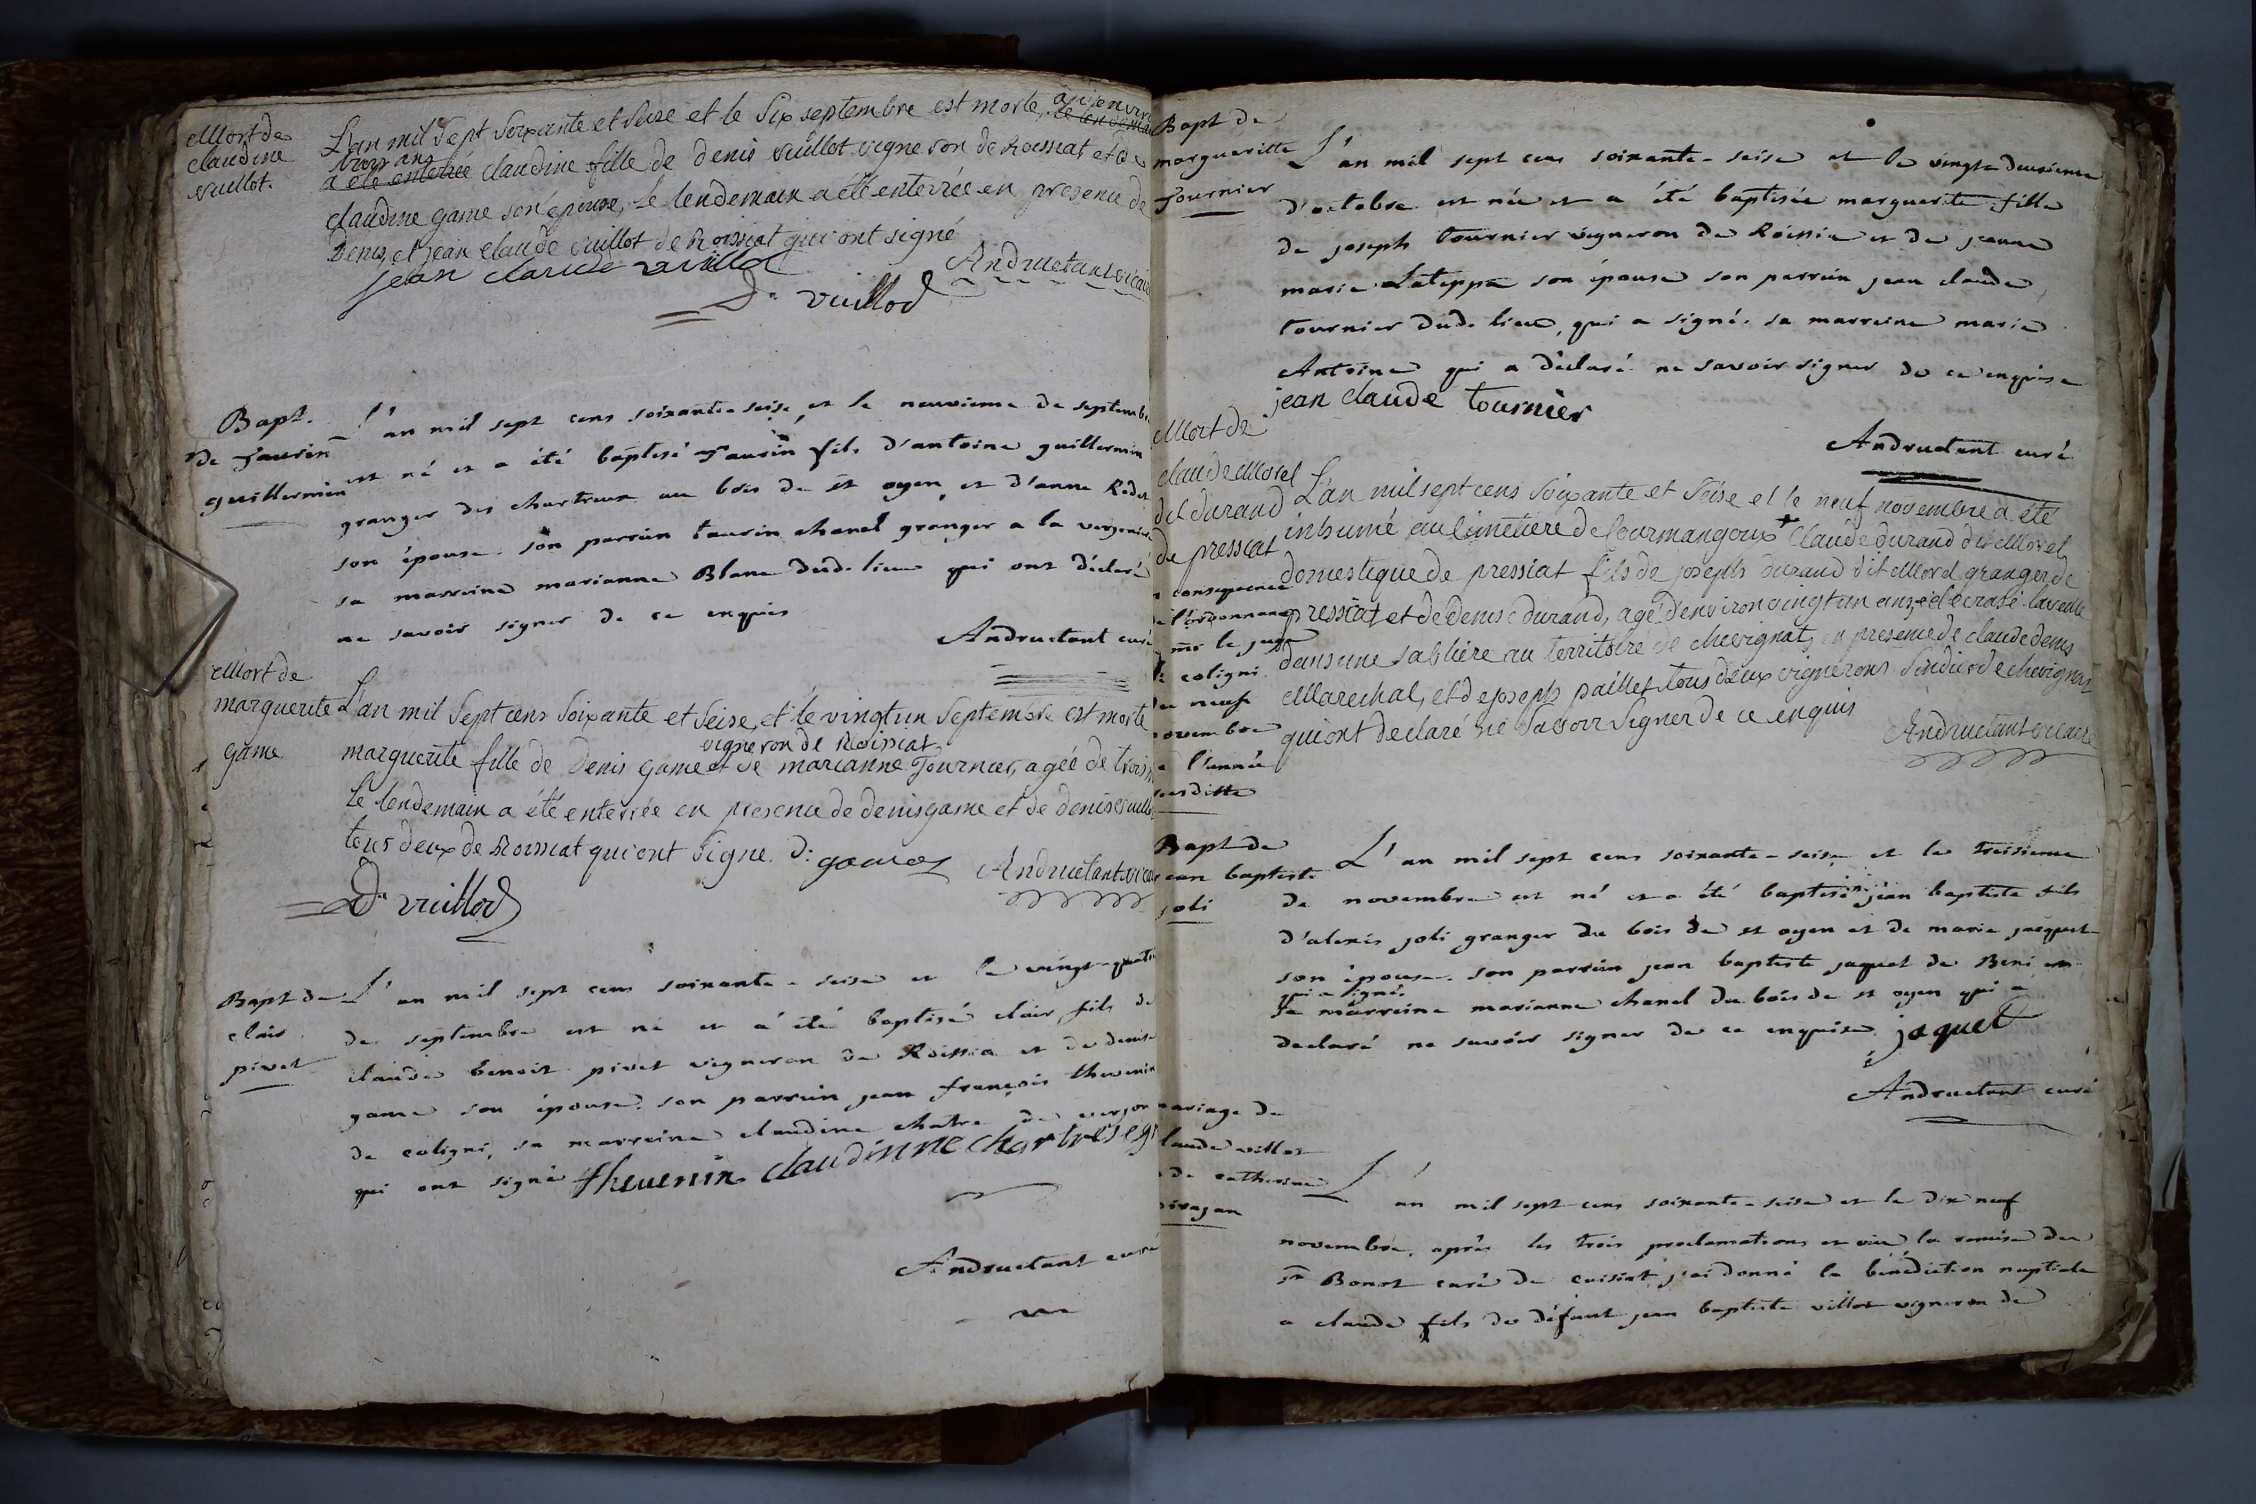 Mort de
claudine
vuillot.
L'an mil sept soixante et seise et le six septembre est morte,
trois ans
a été enterrée claudine fille de denis vuillot vigneron de Roissiat et de
claudine game son épouse, le lendemain a été enterrée en presence de
Denis, et jean claude vuillot de Roissiat qui ont signé
jean claude vuillot
Andructant vicaire
D. vuillod
Bapt.
de taurin
guillermin
L'an mil sept cens soixante-seise, et le neuvieme de septembre
est né et a été baptisé taurin fils d'antoine guillermin
granger des chartreux au bois de st oyen et d'anne Rodet
son épouse. son parrain taurin chanel granger a la verjoniere
sa marreine marianne Blanc dud. lieu qui ont déclaré
ne savoir signer de ce enquis
Andructant curé
Mort de
marguerite
game
L'an mil sept cens soixante et seise, et le vingt un septembre est morte
vigneron de Roissiat
marguerite fille de denis game et de marianne Tournier, agée de trois
le lendemain a été enterrée en presence de denis game et de denis vuillot
tous deux de Roissiat qui ont signe. d. game
Andructant vicaire
D. vuillod
Bapt de
clair
pivet
L'an mil sept cens soixante-seise et le vingt-quatre
de septembre est né et a été baptisé clair, fils de
claude benoit pivet vigneron de Roissia et de denise
game son épouse. son parrain jean françois thevenin
de coligni, sa marreine claudine chatre de verjon
qui ont signé thevenin claudinne chartre
Andructant curé
Bapt de
margueritte
Tournier
L'an mil sept cens soixante-seise et le vingt-deuxieme
d'octobre est née et a été baptisée marguerite fille
de joseph tournier vigneron de Roissia et de jeanne
marie Lateppe son épouse son parrain jean claude
tournier dud. lieu, qui a signé. sa marreine marie
Antoine qui a déclaré ne savoir signer de ce enquise
jean claude tournier
Andructant curé
Mort de
claude Morel
dit durand
de pressiat
consequence
l'ordonnance
mr le juge
coligni
neuf
novembre
l'année
susditte
L'an mil sept cens soixante et seise et le neuf novembre a été
inhumé au cimetiere de Courmangoux claude durand dit Morel,
domestique de pressiat fils de joseph durand dit Morel granger de
pressiat et de denise durand, agé d'environ vingt un ans, écrasé la veille
dans une sablière au territoire de chevignat, en presence de claude denis
Marechal, et de joseph paillet tous deux vignerons sindics de chevignat
qui ont declaré ne savoir signer de ce enquis
Andructant vicaire
Bapt de
jean baptiste
joli
L'an mil sept cens soixante-seise et le treisieme
de novembre est né et a été baptisé jean baptiste fils
d'alexis joli granger du bois de st oyen et de marie jacquet
son épouse. son parrain jean baptiste jaquet de Beni
qui a signé.
sa marreine marianne chanel du bois de st oyen qui a
declaré ne savoir signer de ce enquise. jaquet
Andructant curé
mariage de
claude villot
de catherine
L'an mil sept cens soixante-seise et le dix neuf
novembre, après les trois proclamations et vue la remise du
sr Bonot curé de cuisiat, j'ai donné la bénédiction nuptiale
a claude fils de défunt jean baptiste villot vigneron de